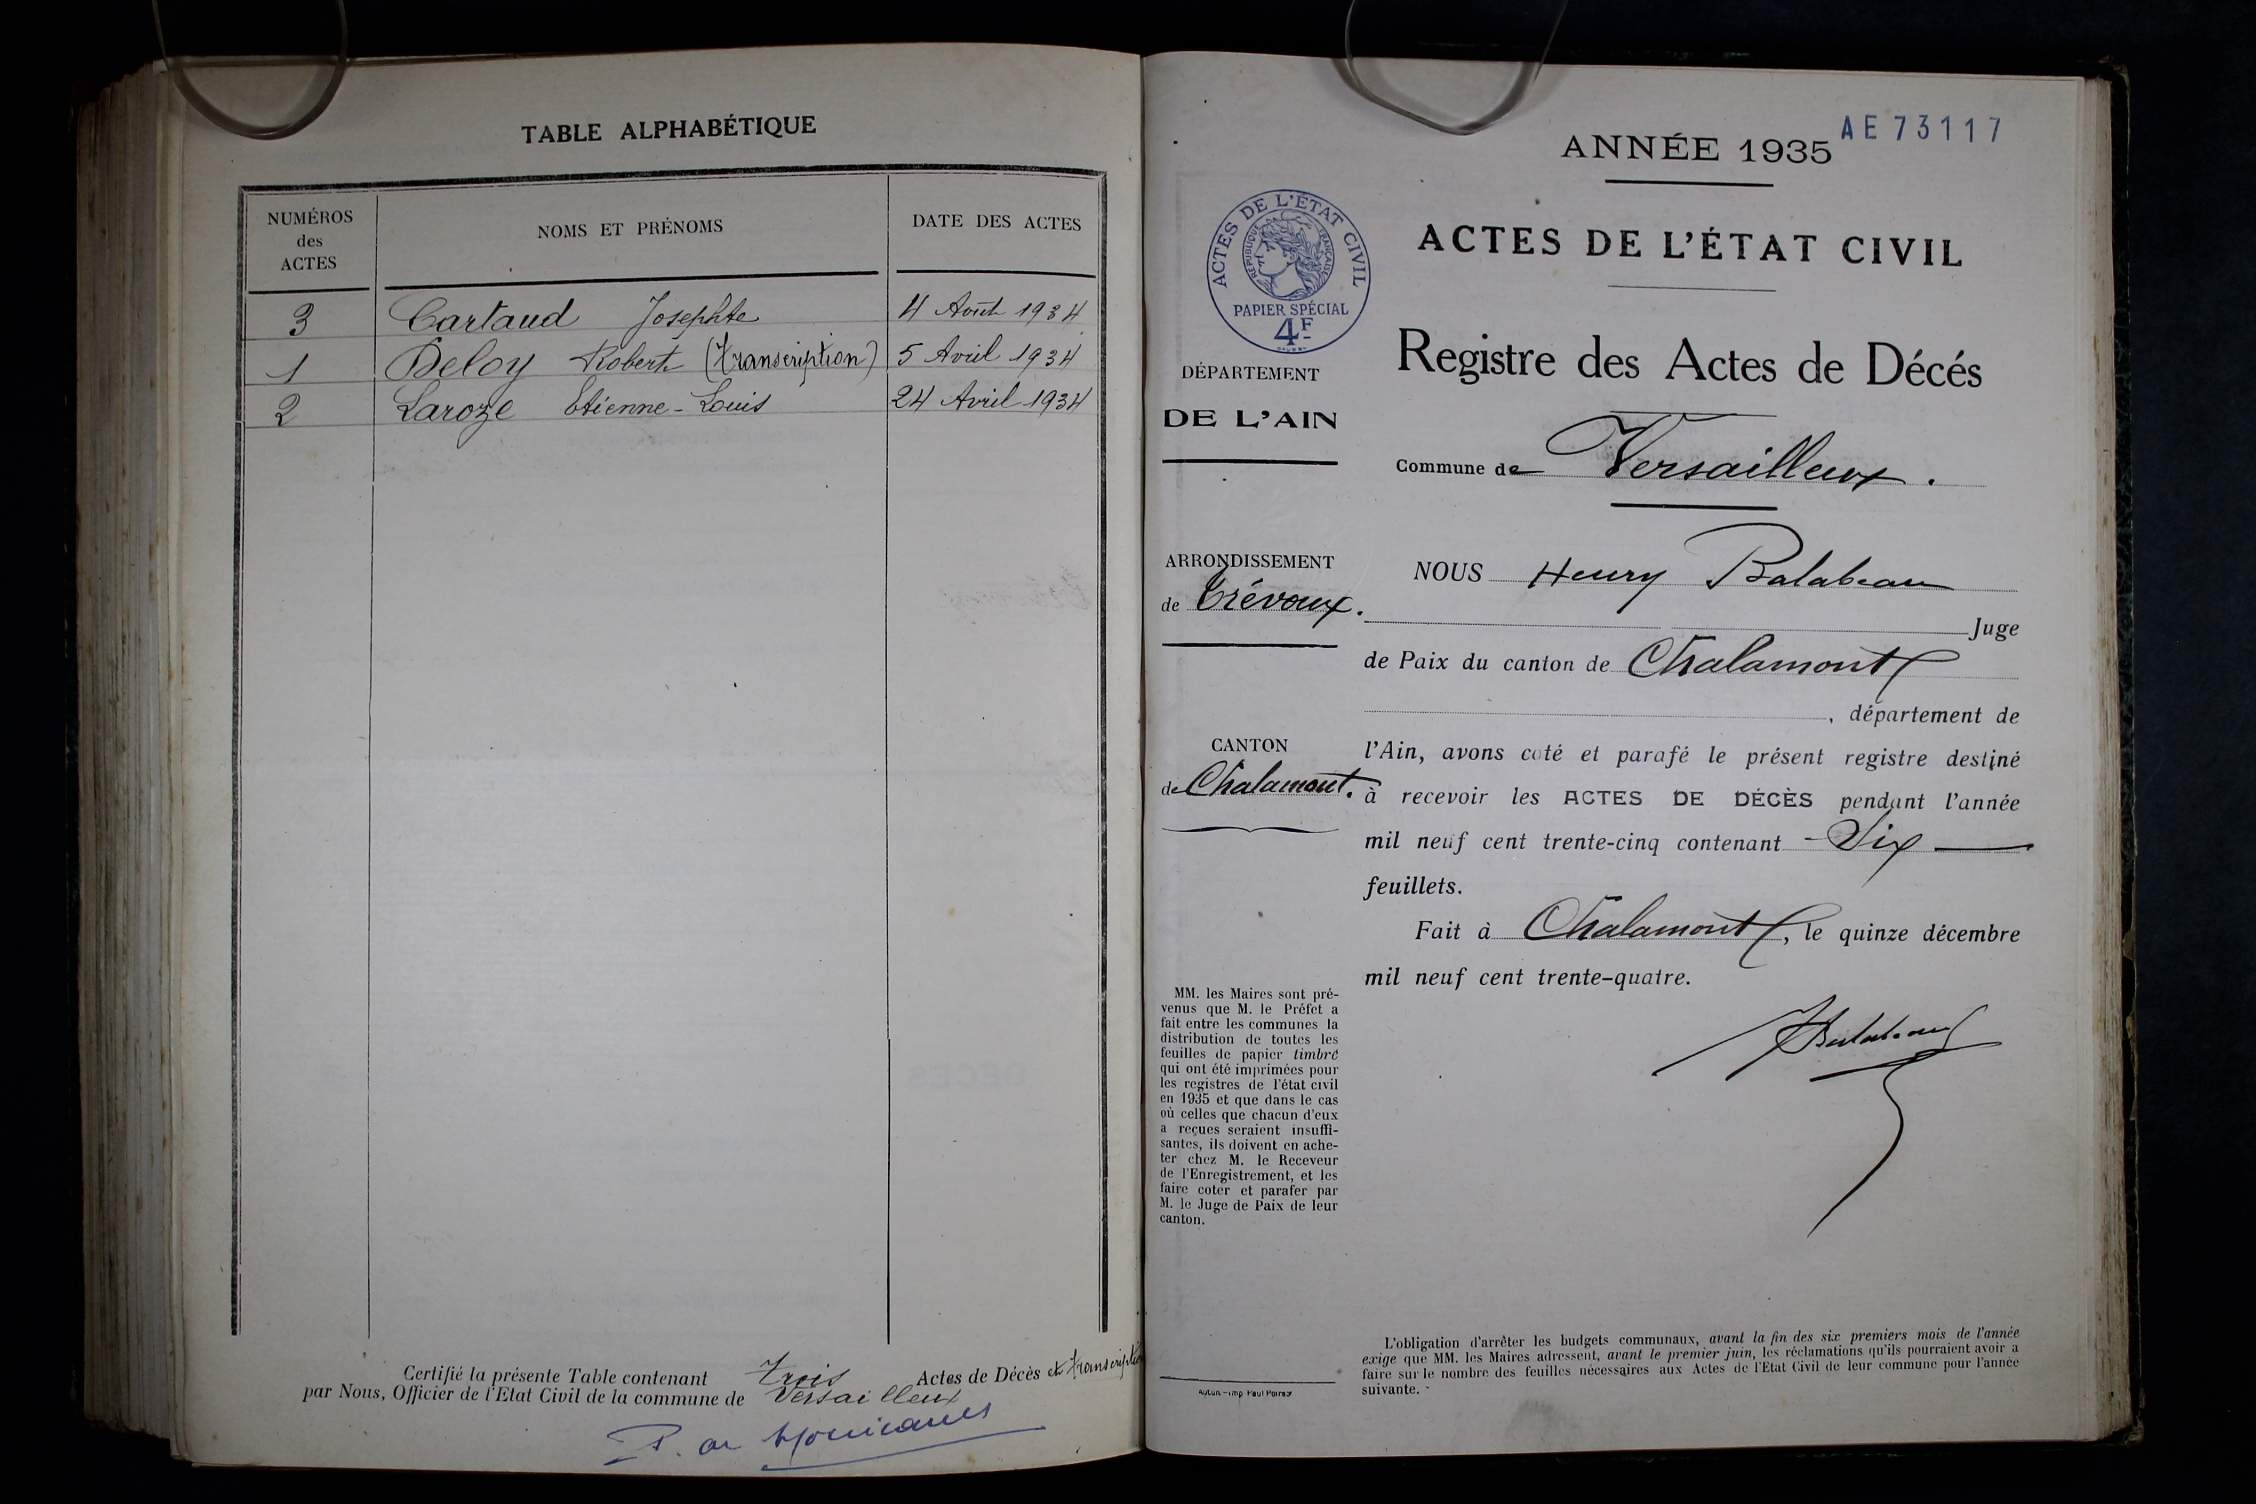 TABLE ALPHABÉTIQUE
NUMÉROS
des
ACTES
NOMS ET PRÉNOMS
DATE DES ACTES
3 Cartaud Josephte 4 Août 1934
1 Deloy Robert (transcription) 5 Avril 1934
2 Laroze Etienne-Louis 24 Avril 1934
Certifié la présente Table contenant Trois Actes de Décès et transcription
par Nous, Officier de l'Etat Civil de la commune de Versailleux
P. de
AE 73117
ANNÉE 1935
ACTES DE L'ÉTAT CIVIL
RÉPUBLIQUE FRANÇAISE
PAPIER SPÉCIAL
4F
ACTES DE L'ÉTAT CIVIL
Registre des Actes de Décés
DÉPARTEMENT
DE L'AIN
Commune de Versailleux.
ARRONDISSEMENT
de Trévoux.
CANTON
de Chalamont.
NOUS Henry Balabeau
Juge
de Paix du canton de Chalamont
, département de
l'Ain, avons coté et parafé le présent registre destiné
à recevoir les ACTES DE DÉCÈS pendant l'année
mil neuf cent trente-cinq contenant - Six —
feuillets.
Fait à Chalamont, le quinze décembre
mil neuf cent trente-quatre.
HBalabeau
MM. les Maires sont pré-
venus que M. le Préfet a
fait entre les communes la
distribution de toutes les
feuilles de papier timbré
qui ont été imprimées pour
les registres de l'état civil
en 1935 et que dans le cas
où celles que chacun d'eux
a reçues seraient insuffi-
santes, ils doivent en ache-
ter chez M. le Receveur
de l'Enregistrement, et les
faire coter et parafer par
M. le Juge de Paix de leur
canton.
Autun.-Imp Paul
L'obligation d'arrêter les budgets communaux, avant la fin des six premiers mois de l'année
exige que MM. les Maires adressent, avant le premier juin, les réclamations qu'ils pourraient avoir a
faire sur le nombre des feuilles nécessaires aux Actes de l'Etat Civil de leur commune pour l'année
suivante.